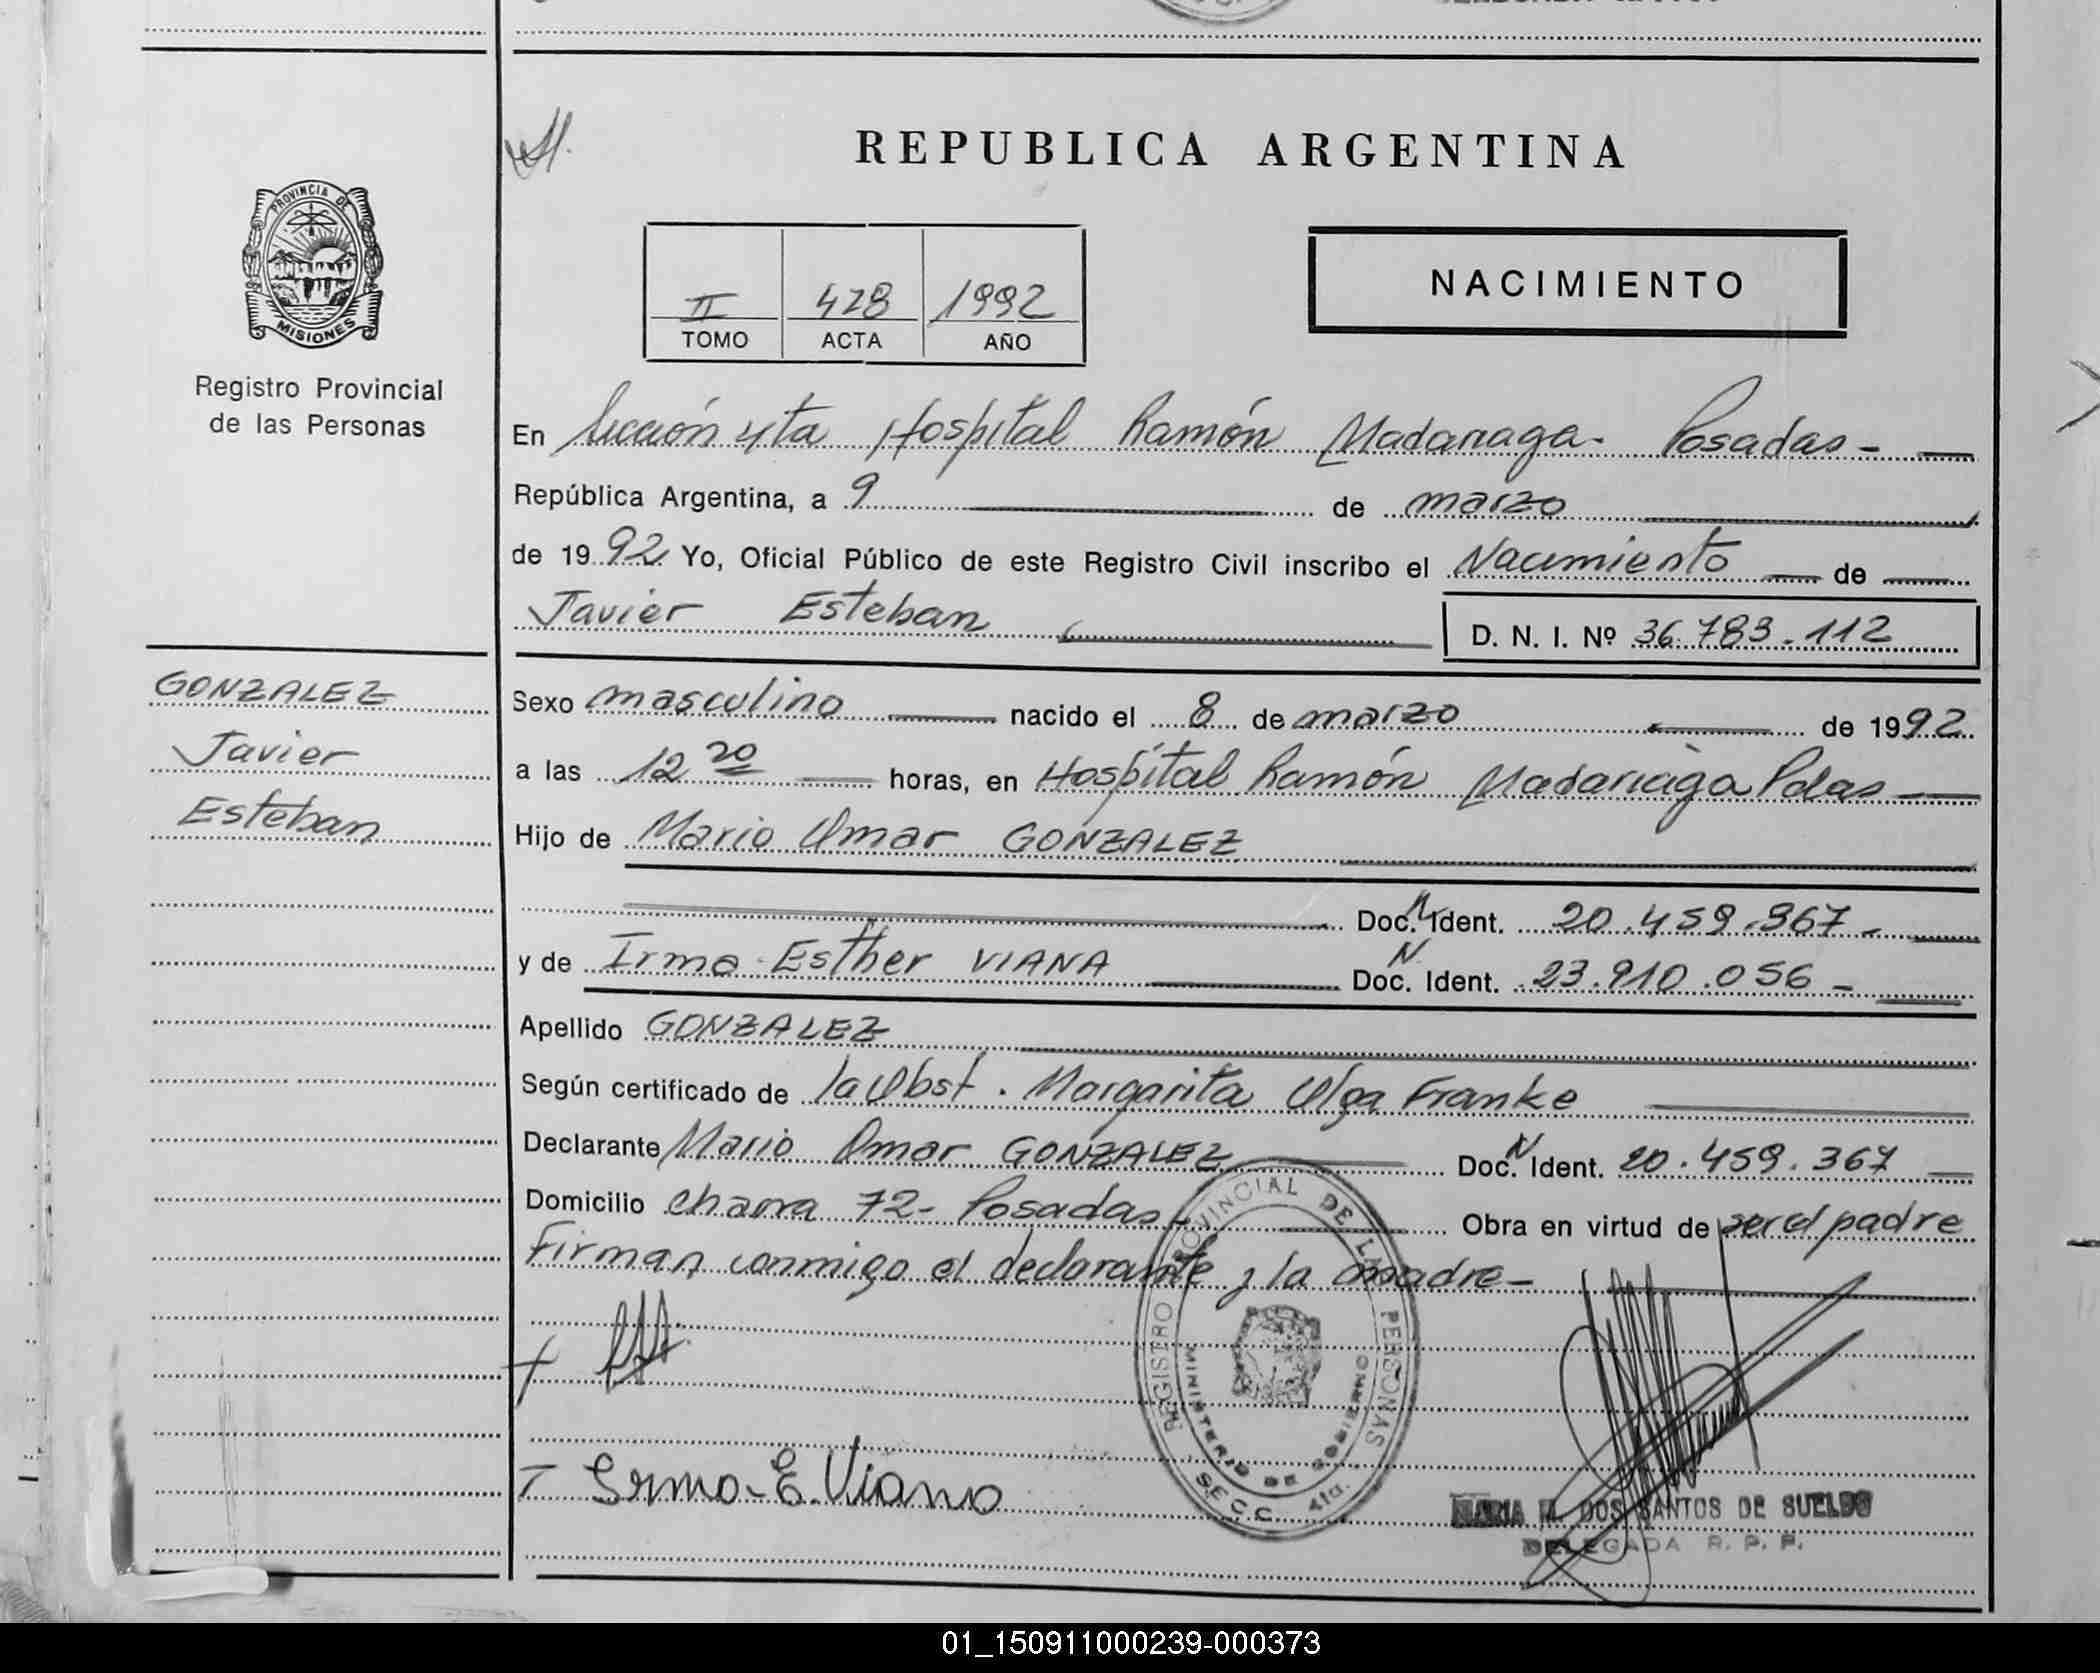 REPUBLICA ARGENTINA
PROVINCIA DE
MISIONES
Registro Provincial
de las Personas
II 428 1992
TOMO ACTA AÑO
NACIMIENTO
En Sección 4ta Hospital Ramón Madariaga - Posadas -
República Argentina, a 9 de marzo
de 1992 Yo, Oficial Público de este Registro Civil inscribo el Nacimiento de
Javier Esteban
D. N. I. Nº 36.783.112
GONZALEZ
Javier
Esteban
Sexo masculino nacido el 8 de marzo de 1992
a las 12 20 horas, en Hospital Ramón Madariaga Pdas
Hijo de Mario Omar GONZALEZ
Doc. N Ident. 20.459.367 -
y de Irma Esther VIANA Doc. N Ident. 23.910.056 -
Apellido GONZALEZ
Según certificado de la Obst. Margarita Olga Franke
Declarante Mario Omar GONZALEZ Doc. N Ident. 20.459.367
Domicilio Chacra 72 - Posadas - Obra en virtud de ser el padre
Firman conmigo el declarante y la madre -
REGISTRO PROVINCIAL DE LAS PERSONAS
MINISTERIO DE GOBIERNO
SECC. 4ta.
Irma E. Viana
MARIA M. DOS SANTOS DE SUELDO
DELEGADA R. P. P.
01_150911000239-000373